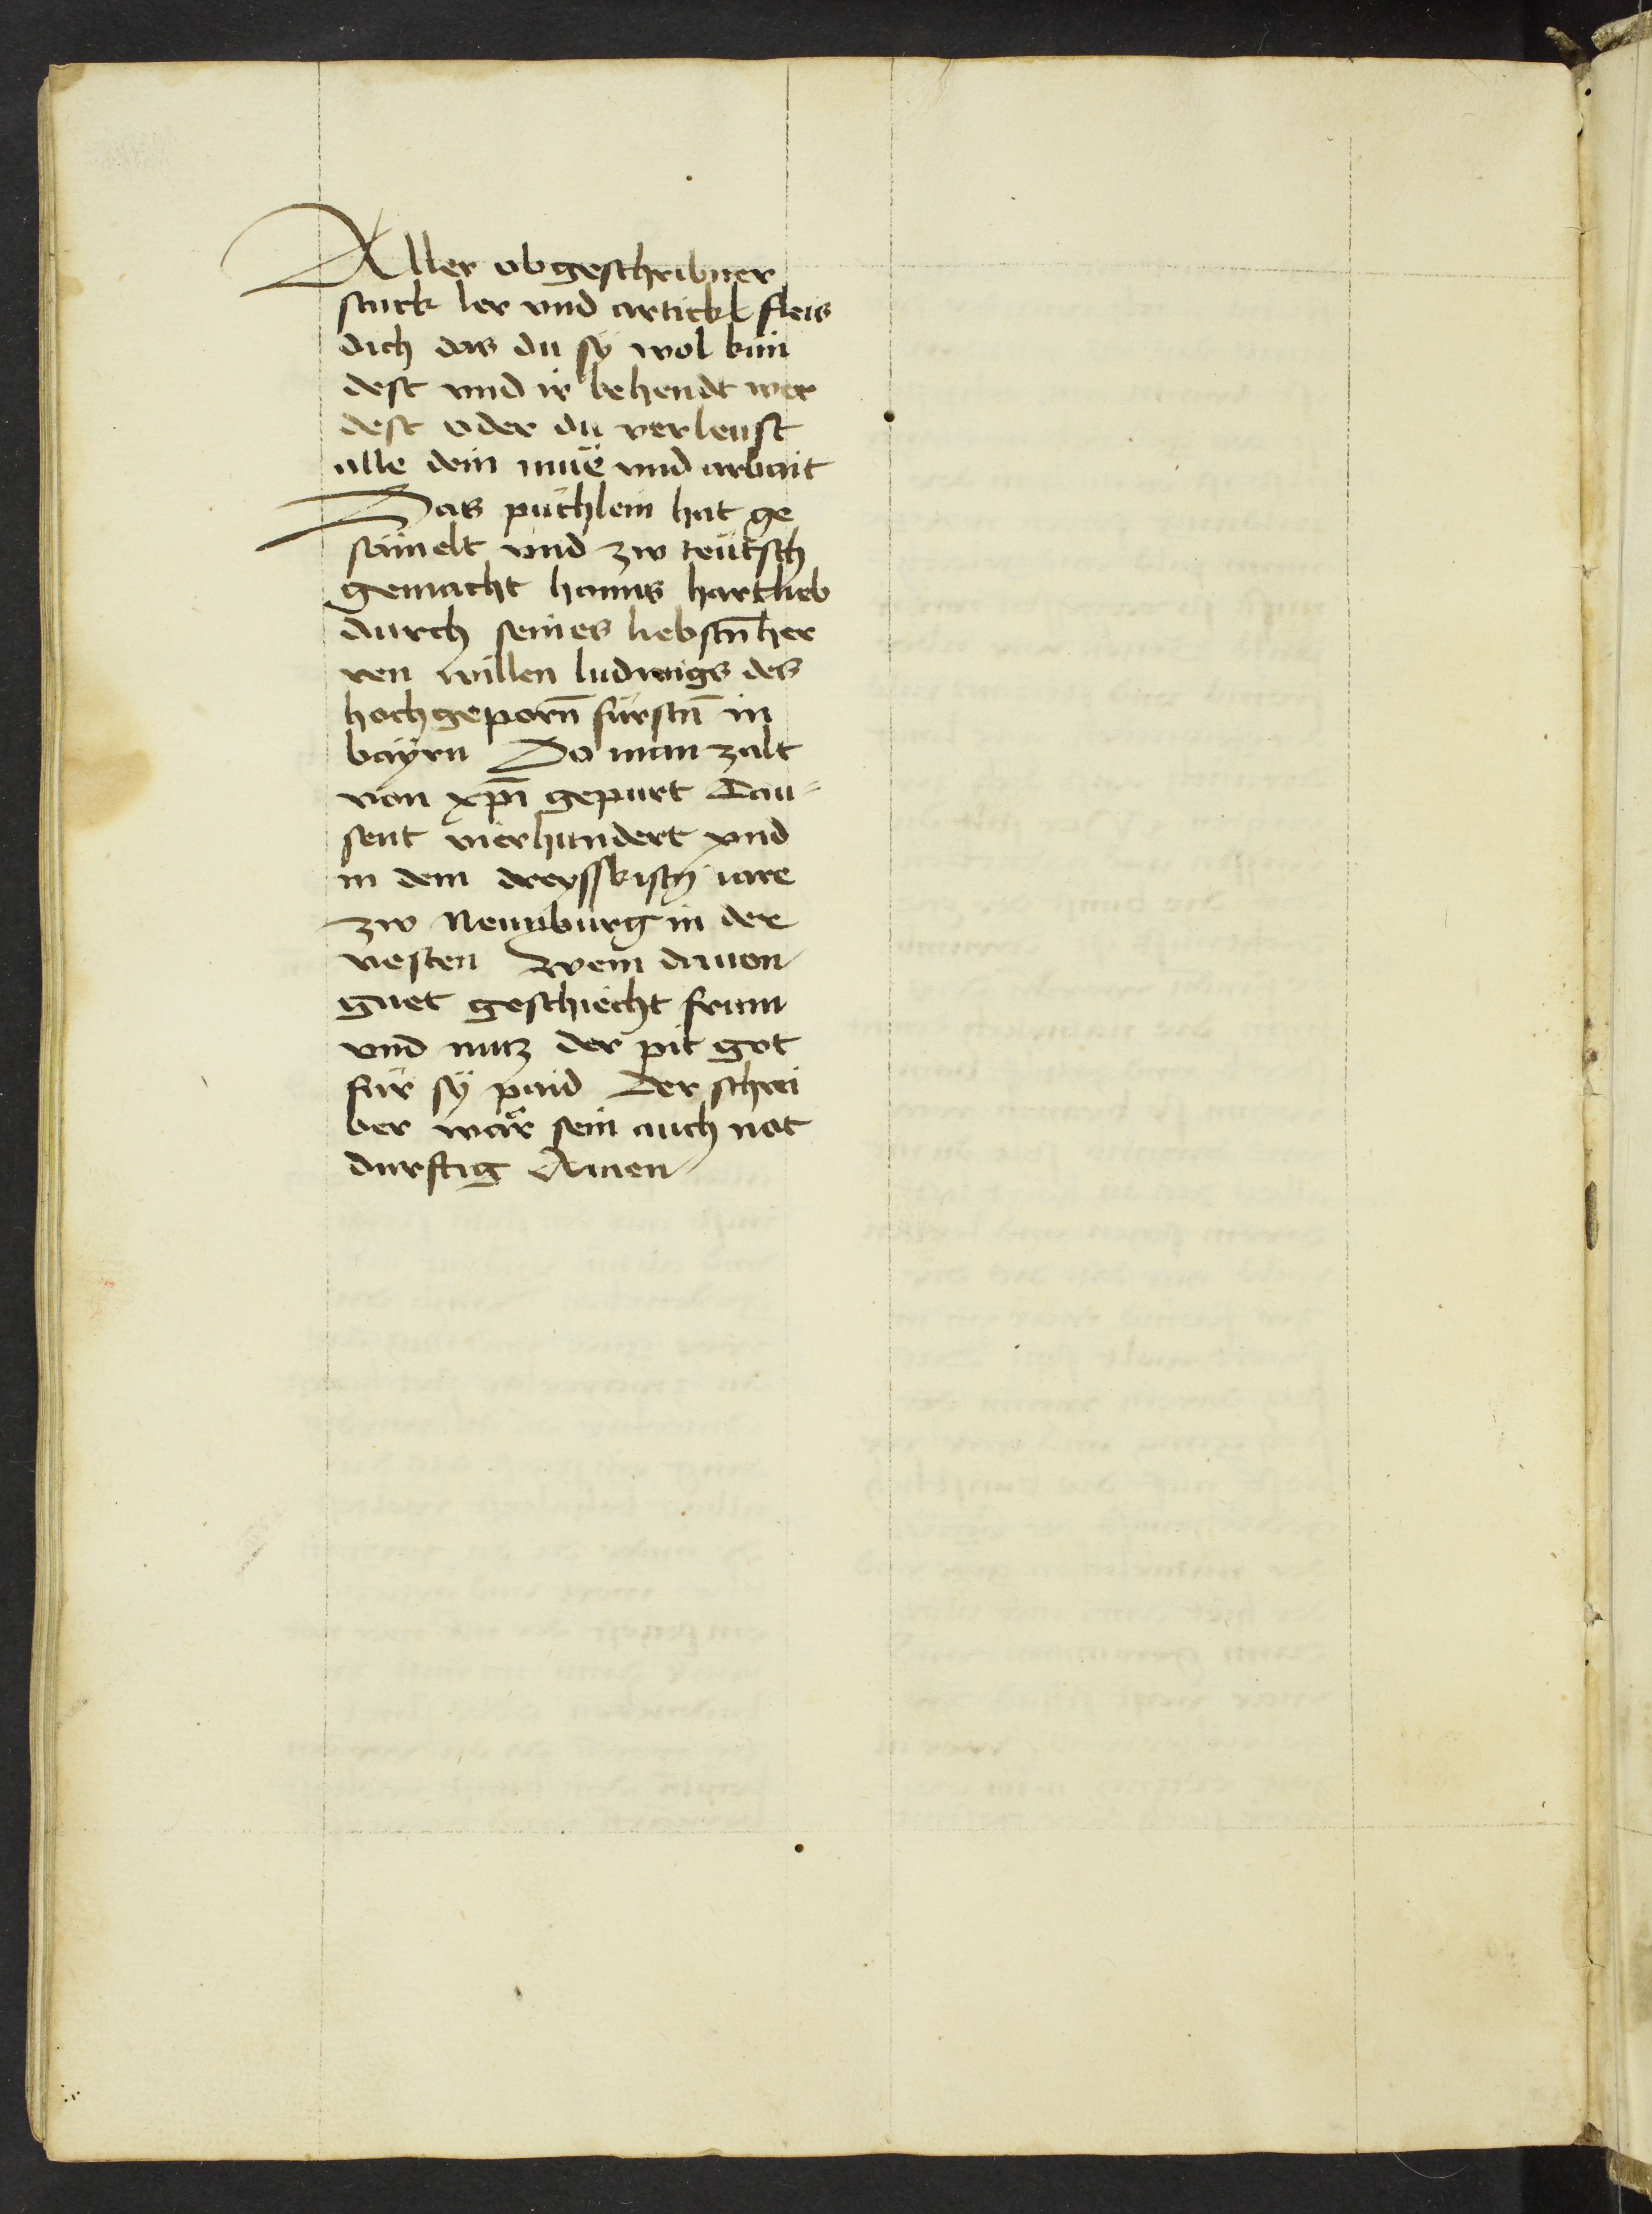 Aller obgeschribner
stuck ler vnd artickl fleis
dich das du sÿ wol kün
dest vnd ir behendt wer
dest oder du verleust
alle dein müe vnd arbait
Das püchlein hat ge
sämelt vnd zw teütsch
gemacht hanns hartlieb
durch seines liebstn̄ her
ren willen ludwigs des
hochgeporn̄ fürstn̄ in
bayrn Do man zalt
von xp̄i gepurt Tau-
sent vierhundert vnd
in dem dreysskisth iare
zw Neunburg in der
vesten Wem dauon
guet geschiecht frum
vnd nutz der pit got
für sÿ paid Der schrei
ber wär sein auch not
durftig Amen